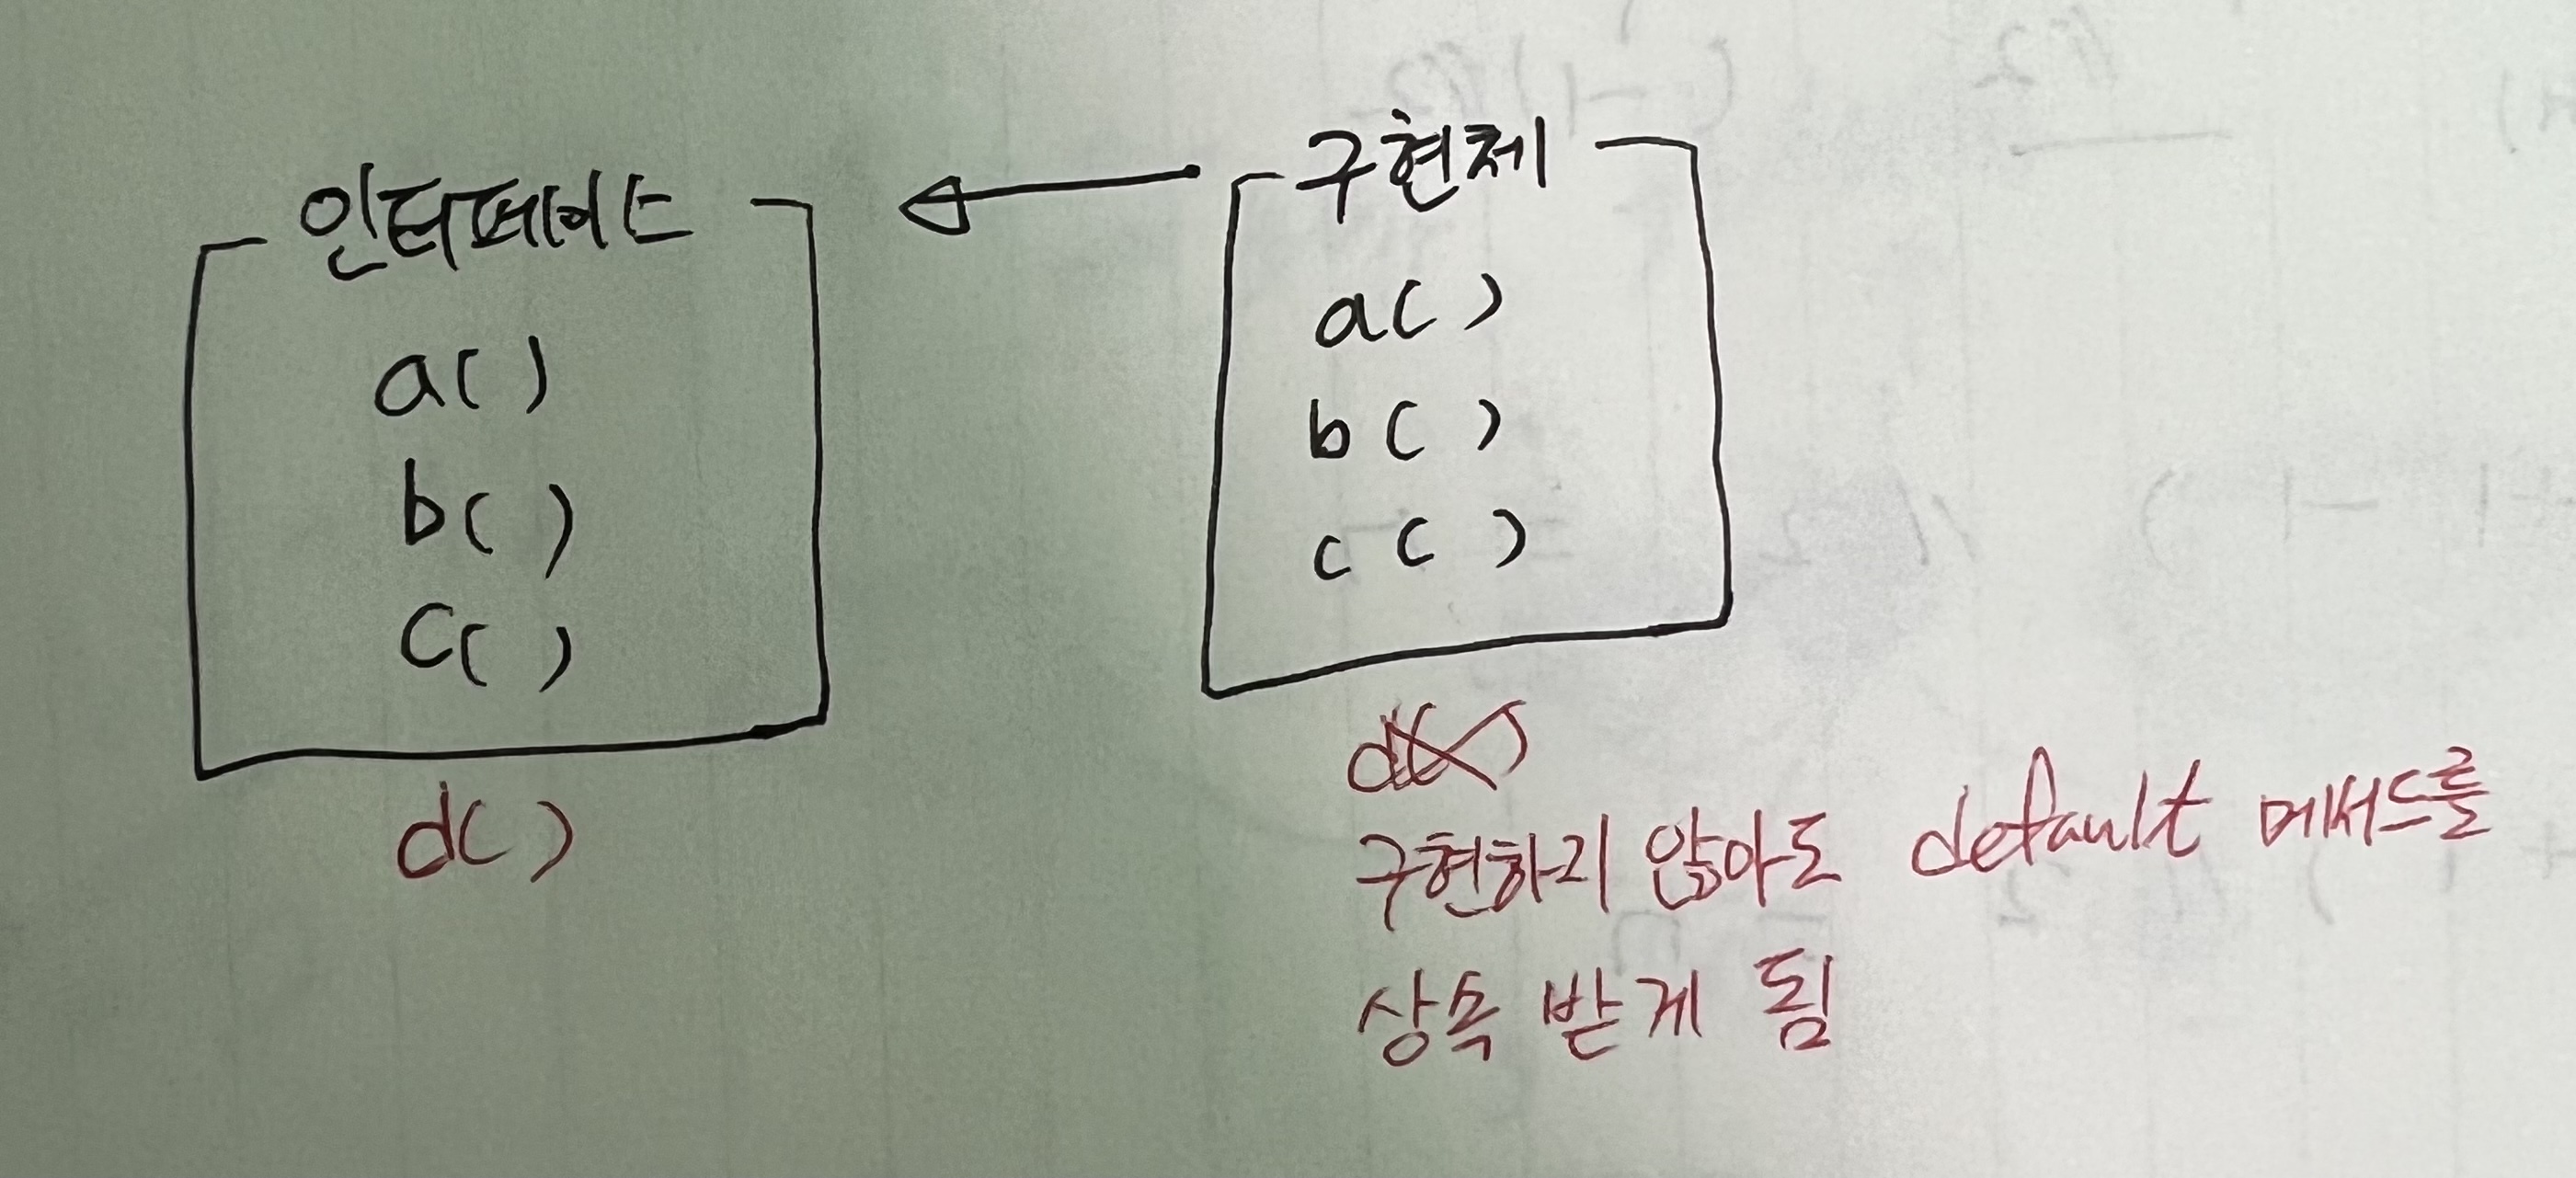 인터페이스
a()
b()
c()
d()
구현체
a()
b()
c()
d()
구현하지 않아도 default 메서드를
상속 받게 됨